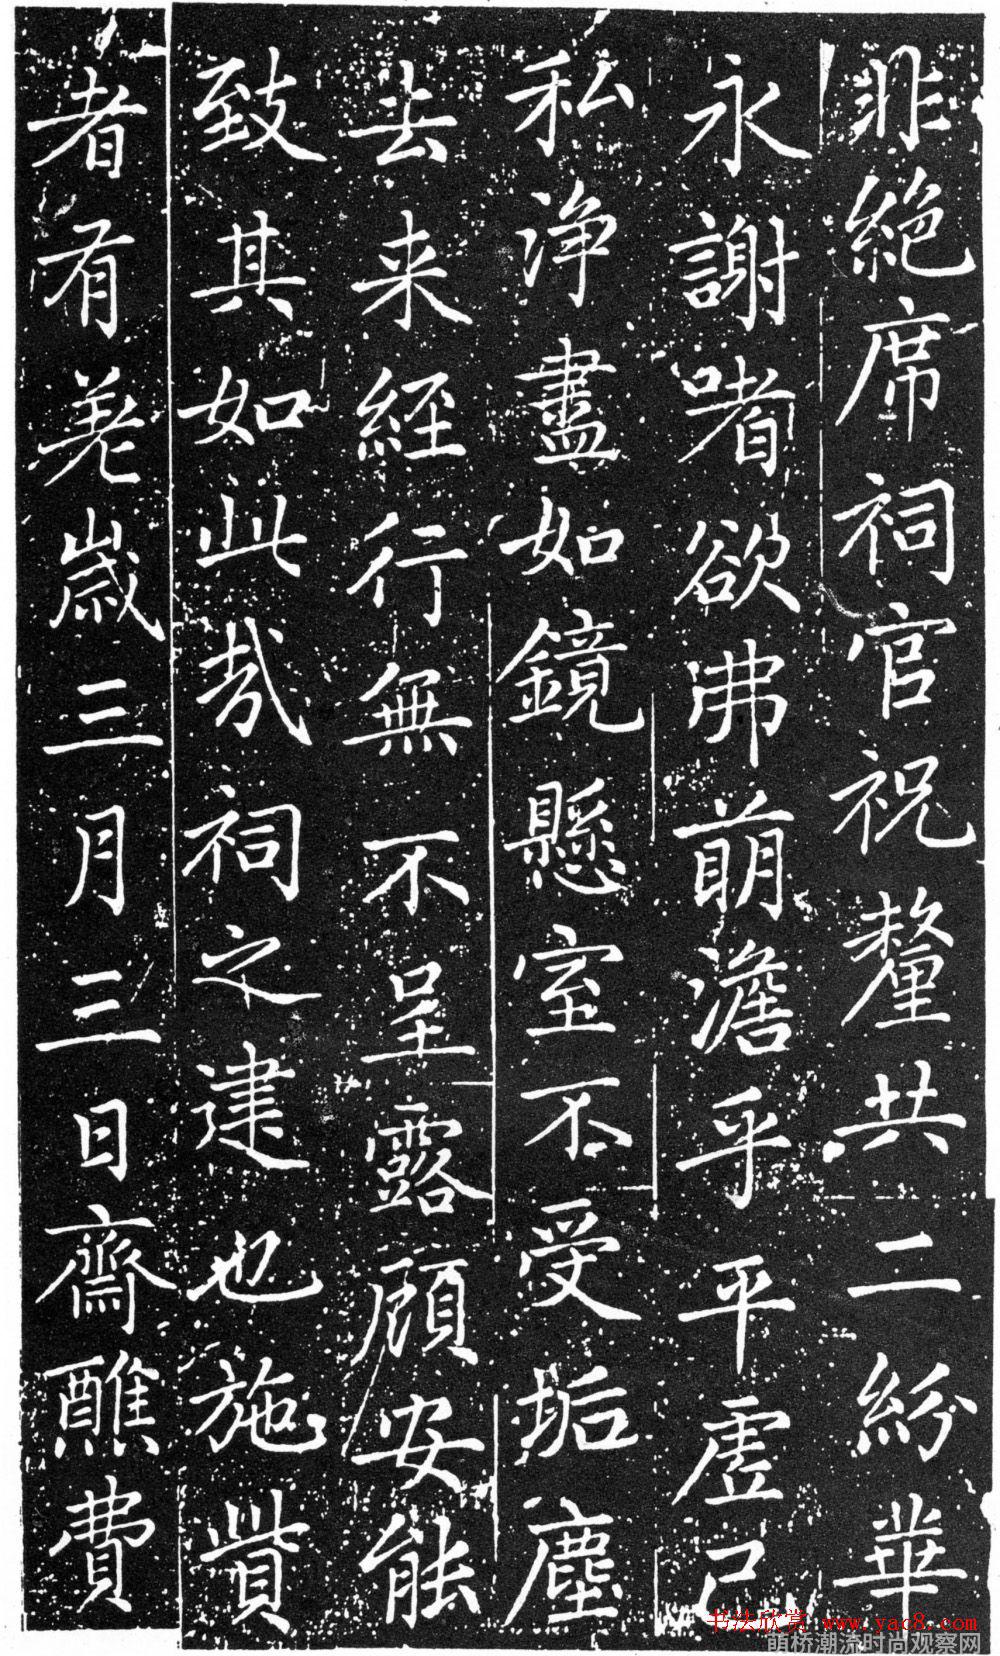 非絶席祠官祝釐共二紛華
永謝嗜欲弗萌澹乎平虛己
私浄盡如鏡懸室不受垢塵
去来經行無不呈露顧安能
致其如此哉祠之建也施貲
者有羌歲三月三日齋醮費
书法欣赏 www.yac8.com
萌桥潮流时尚观察网